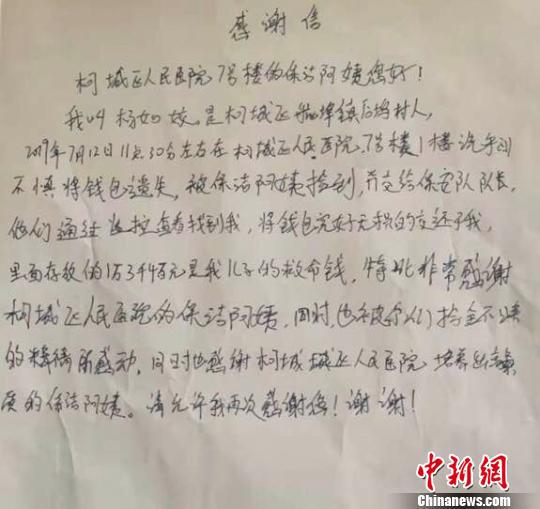 感谢信
柯城区人民医院7号楼的保洁阿姨您好!
我叫杨如姣,是柯城区航埠镇后坞村人,
2019年7月12日11点30分左右在柯城区人民医院7号楼1楼洗手间
不慎将钱包遗失,被保洁阿姨捡到,并交给保安队队长,
他们通过监控查看找到我,将钱包完好无损的交还于我,
里面存放的1万3千4百元是我儿子的救命钱,特此非常感谢
柯城区人民医院的保洁阿姨,同时,也被你们拾金不昧
的精神所感动,同时也感谢柯城城区人民医院培养出高素
质的保洁阿姨。请允许我再次感谢您!谢谢!
中新网
Chinanews.com